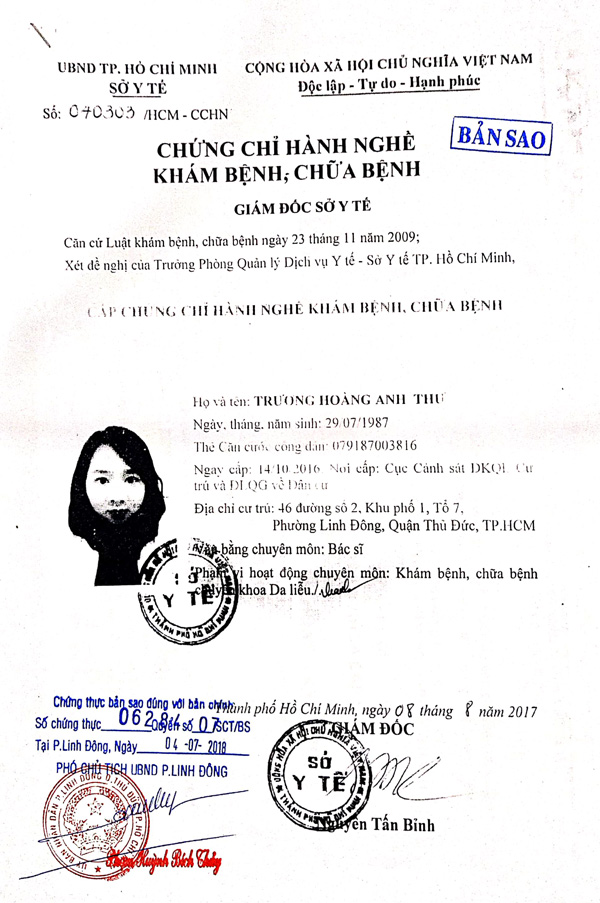 UBND TP. HỒ CHÍ MINH
SỞ Y TẾ
CỘNG HÒA XÃ HỘI CHỦ NGHĨA VIỆT NAM
Độc lập - Tự do - Hạnh phúc
Số: 070303 /HCM - CCHN
BẢN SAO
CHỨNG CHỈ HÀNH NGHỀ
KHÁM BỆNH, CHỮA BỆNH
GIÁM ĐỐC SỞ Y TẾ
Căn cứ Luật khám bệnh, chữa bệnh ngày 23 tháng 11 năm 2009;
Xét đề nghị của Trưởng Phòng Quản lý Dịch vụ Y tế - Sở Y tế TP. Hồ Chí Minh,
CẤP CHỨNG CHỈ HÀNH NGHỀ KHÁM BỆNH, CHỮA BỆNH
Họ và tên: TRƯƠNG HOÀNG ANH THƯ
Ngày, tháng, năm sinh: 29/07/1987
Thẻ Căn cước công dân: 079187003816
Ngày cấp: 14/10/2016 Nơi cấp: Cục Cảnh sát ĐKQL Cư
trú và DLQG về Dân cư
Địa chỉ cư trú: 46 đường số 2, Khu phố 1, Tổ 7,
Phường Linh Đông, Quận Thủ Đức, TP.HCM
Văn bằng chuyên môn: Bác sĩ
Phạm vi hoạt động chuyên môn: Khám bệnh, chữa bệnh
chuyên khoa Da liễu./
SỞ
Y TẾ
THÀNH PHỐ HỒ CHÍ MINH
Thành phố Hồ Chí Minh, ngày 08 tháng 8 năm 2017
GIÁM ĐỐC
CỘNG HÒA XÃ HỘI CHỦ NGHĨA VIỆT NAM
SỞ
Y TẾ
THÀNH PHỐ HỒ CHÍ MINH
Nguyễn Tấn Bỉnh
Chứng thực bản sao đúng với bản chính
Số chứng thực 06284 Quyển số 07 SCT/BS
Tại P.Linh Đông, Ngày 04 -07- 2018
PHÓ CHỦ TỊCH UBND P.LINH ĐÔNG
Huỳnh Bích Thủy